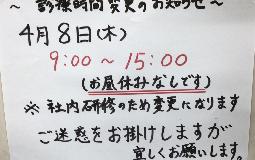 ～ 診療時間変更のお知らせ ～
4月8日(木)
9:00 ～ 15:00
(お昼休みなしです)
※ 社内研修のため変更になります
ご迷惑をお掛けしますが
宜しくお願いします。